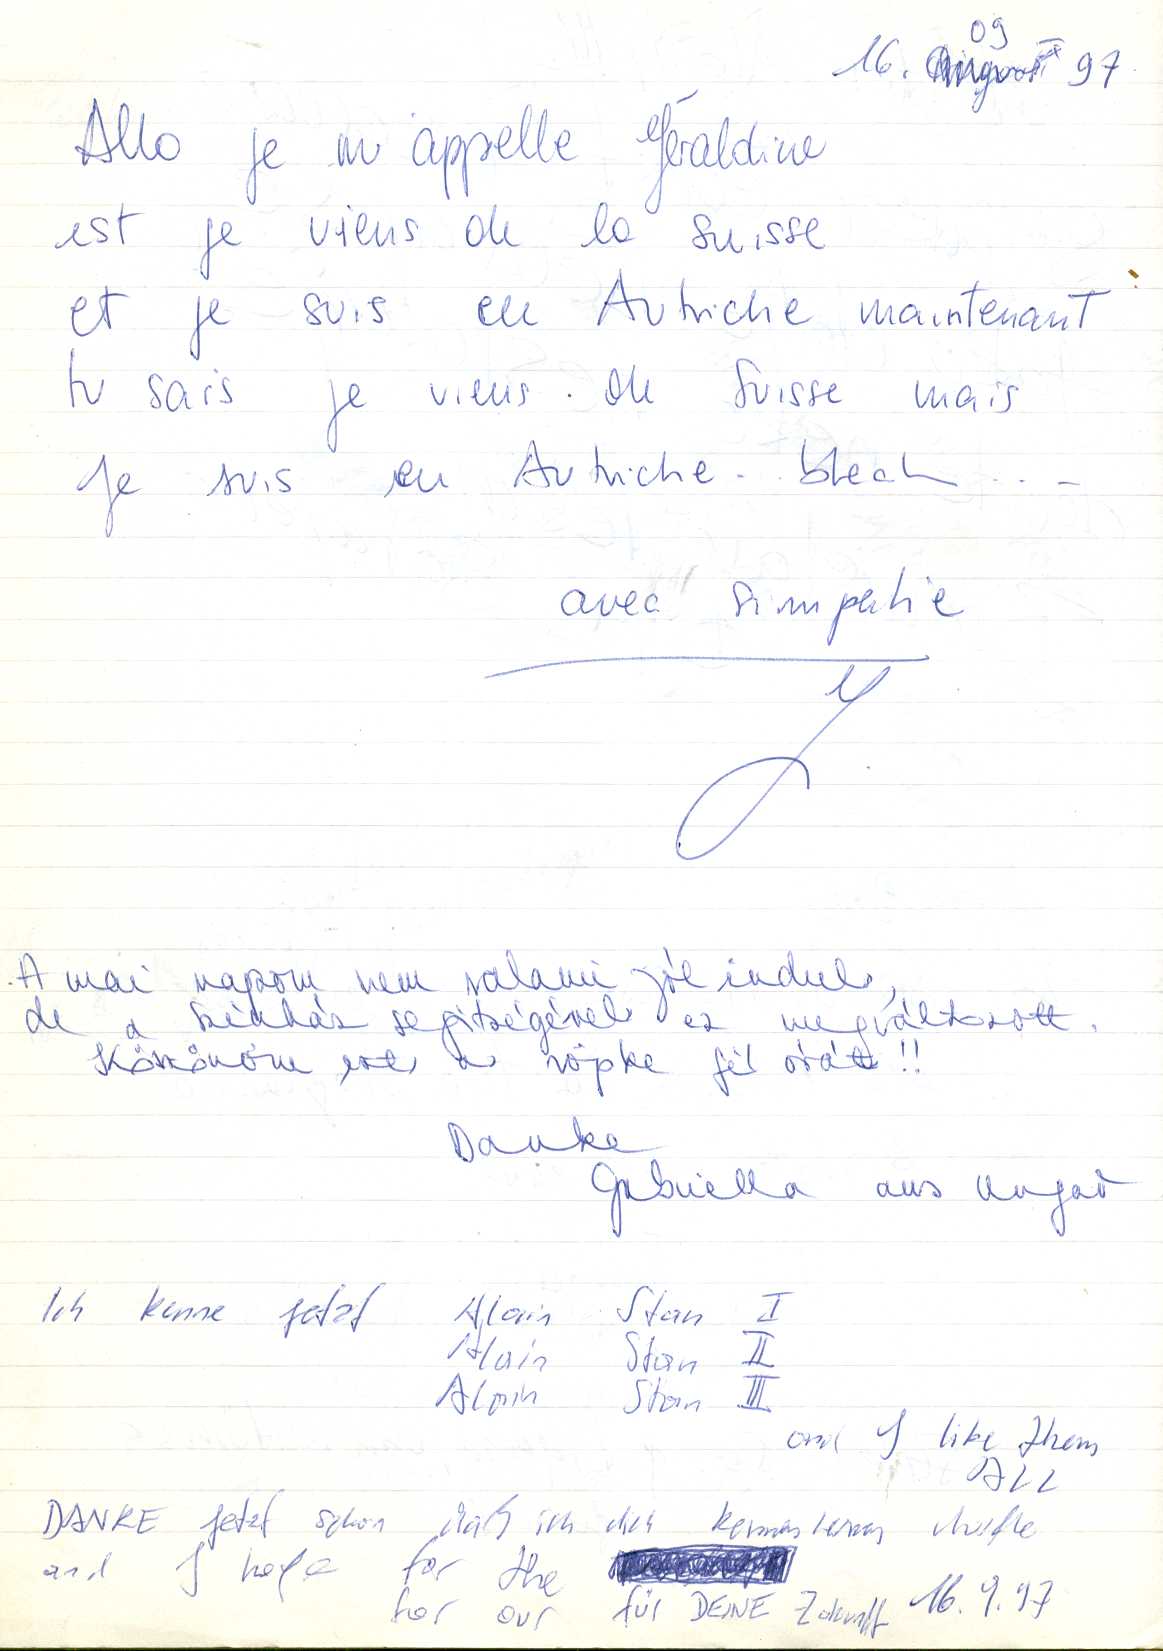 09
16. August 97
Allo je m'appelle Géraldine
est je viens de la suisse
et je suis en Autriche maintenant
tu sais je viens. de Suisse mais
Je suis en Autriche - bleah ... -
avec simpatie
A mai napom nem valami jól indul,
de a színház segítségével ez megváltozott.
Köszönöm ezt a röpke fél órát!!
Danke
Gabriella aus Ungar
Ich kenne jetzt Alain Stan I
Alain Stan II
Alain Stan III
and I like them
ALL
DANKE jetzt schon daß ich dich kennenlernen durfte
and I hope for the
for our für DEINE Zukunft 16.9.97